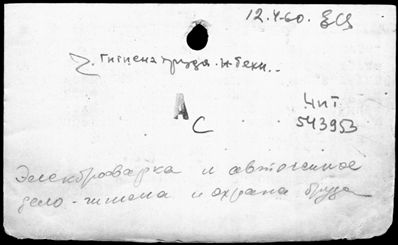 12.4.60.
гигиена труда
А
С
Чит
543953
Электросварка и автогенное
дело - гигиена и охрана труда